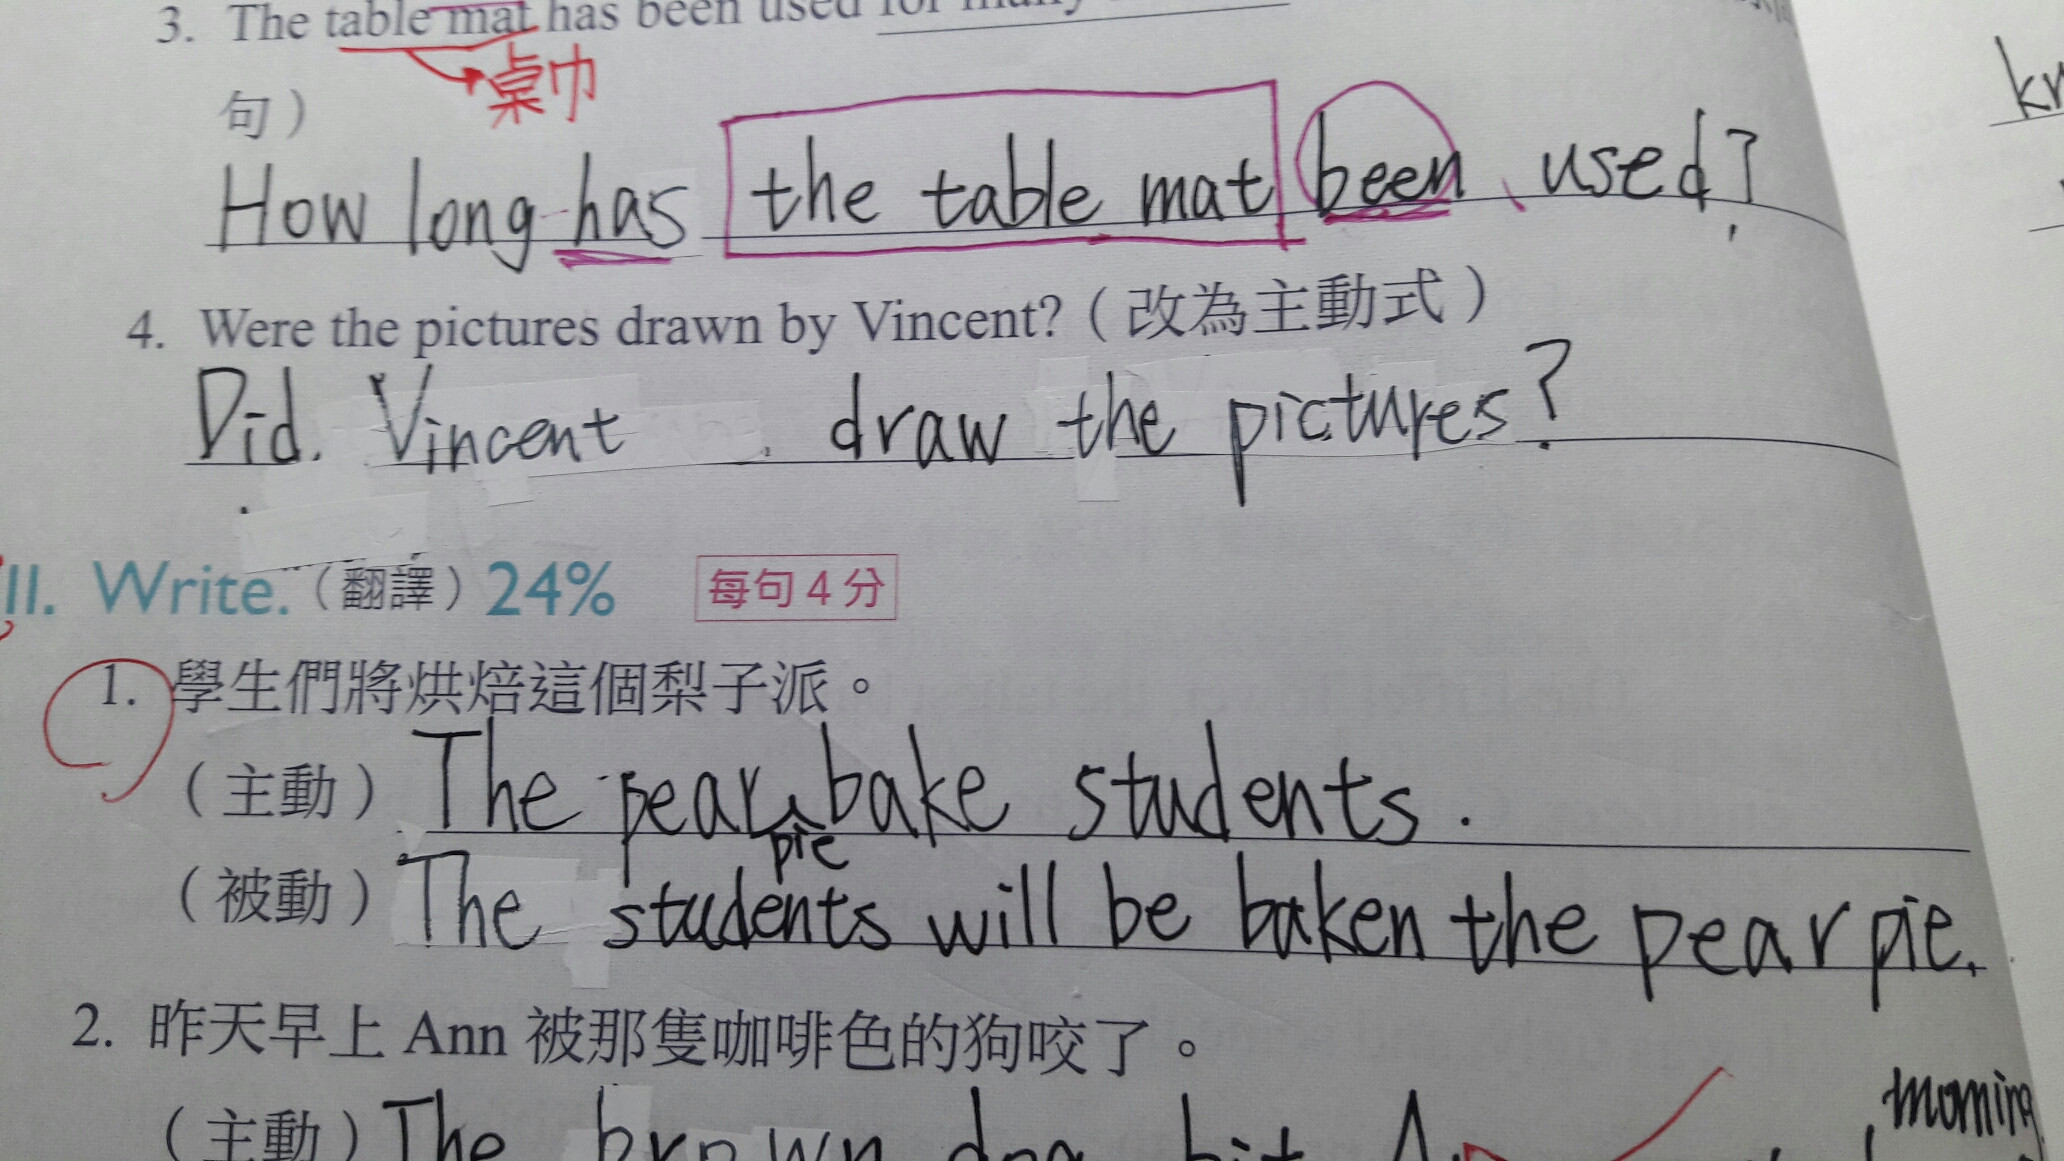 3. The table mat has been used for many
桌巾
句）
How long has the table mat been used?
4. Were the pictures drawn by Vincent?（改為主動式）
Did Vincent draw the pictures?
II. Write.（翻譯）24% 每句4分
1. 學生們將烘焙這個梨子派。
（主動）The pear pie bake students.
（被動）The students will be baken the pear pie.
2. 昨天早上 Ann 被那隻咖啡色的狗咬了。
morning
（主動）The brown dog bit